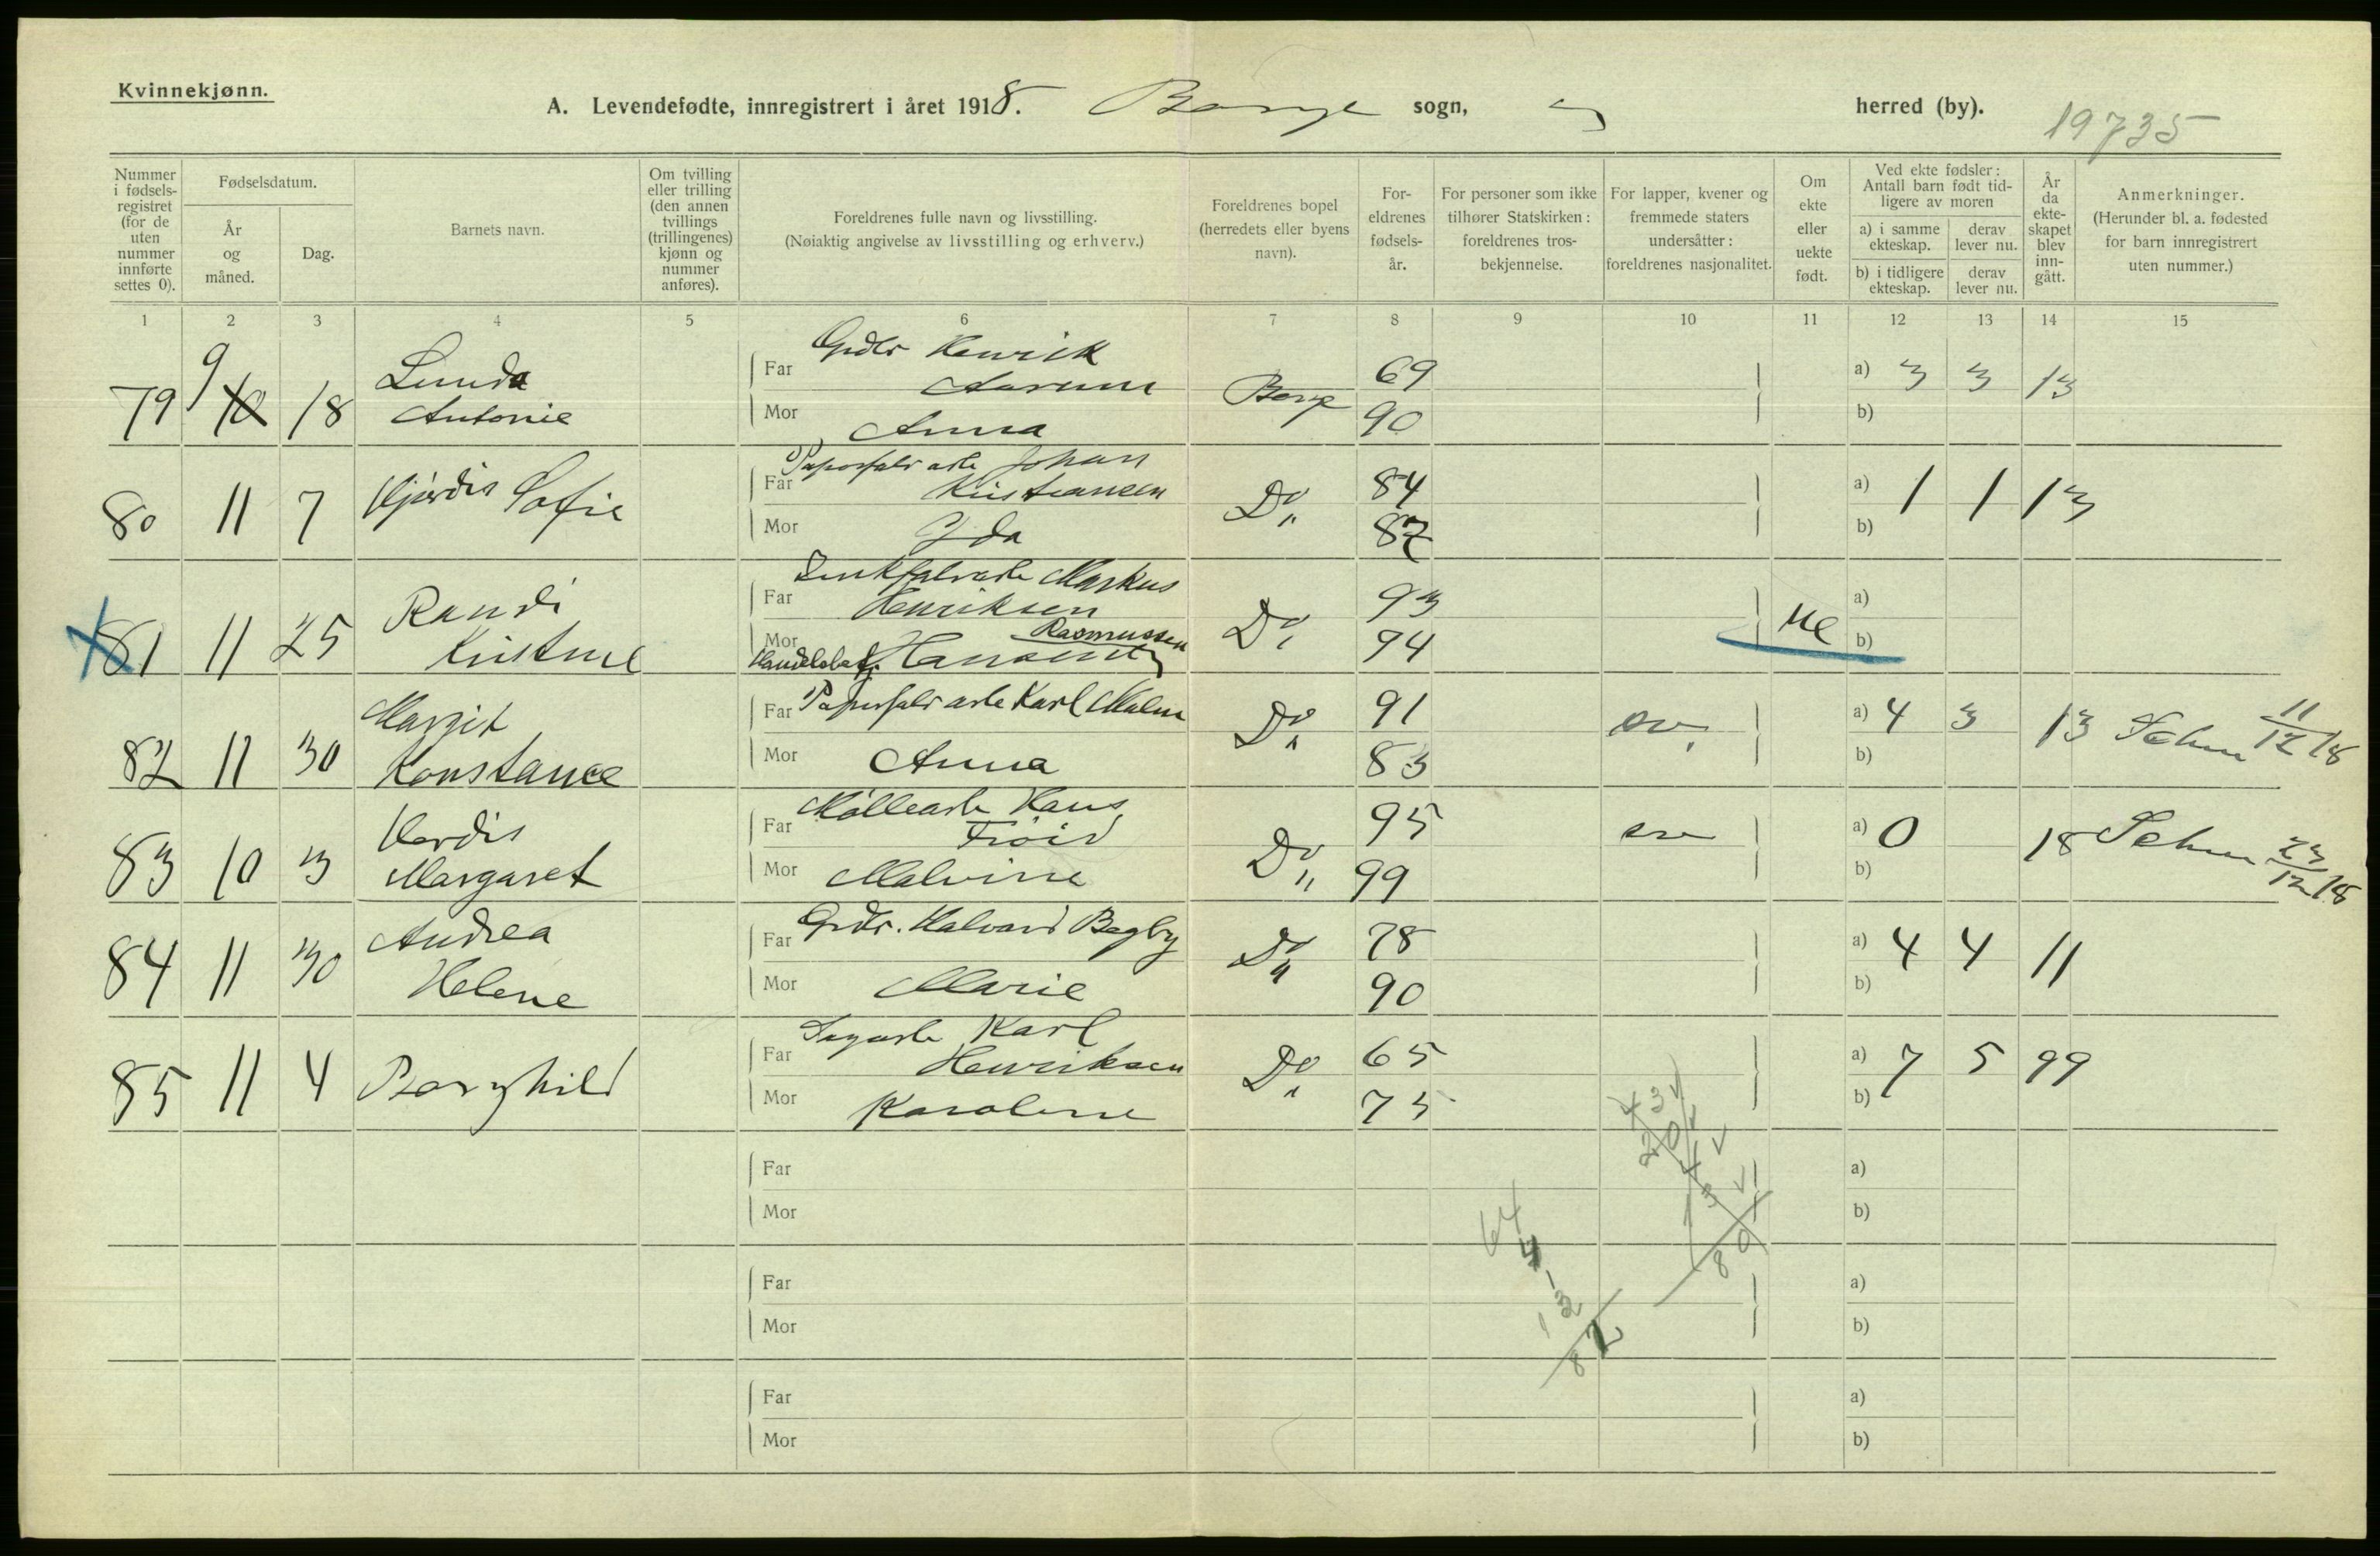 Kvinnekjønn.
A. Levendefødte, innregistrert i året 1918. Borge sogn, herred (by).
19735
Nummer i fødsels-registret (for de uten nummer innførte settes 0).
Fødselsdatum.
År og måned.
Dag.
Barnets navn.
Om tvilling eller trilling (den annen tvillings (trillingenes) kjønn og nummer anføres).
Foreldrenes fulle navn og livsstilling. (Nøiaktig angivelse av livsstilling og erhverv.)
Foreldrenes bopel (herredets eller byens navn).
For-eldrenes fødsels-år.
For personer som ikke tilhører Statskirken: foreldrenes tros-bekjennelse.
For lapper, kvener og fremmede staters undersåtter: foreldrenes nasjonalitet.
Om ekte eller uekte født.
Ved ekte fødsler: Antall barn født tid-ligere av moren
a) i samme ekteskap.
derav lever nu.
b) i tidligere ekteskap.
derav lever nu.
År da ekte-skapet blev inn-gått.
Anmerkninger. (Herunder bl. a. fødested for barn innregistrert uten nummer.)
1 2 3 4 5 6 7 8 9 10 11 12 13 14 15
79 9 10 18 Antonie
Far Grdbr Henrik
Mor Anna
Borge 69 90
a) 3 3 13
b)
80 11 7 Hjørdis Sofie
Far Johan Kristiansen
Mor Ida
Do 84 87
a) 1 1 13
b)
81 11 25 Randi Kristine
Far Markus Henriksen
Mor Rasmussen
Do 93 94 Ue
a)
b)
82 11 30 Margit Konstance
Far Karl Malm
Mor Anna
Do 91 83 sv.
a) 4 3 13 11/12 18
b)
83 10 3 Herdis Margaret
Far Hans
Mor Malvine
Do 95 99 sv
a) 0 18 23/12 18
b)
84 11 30 Andrea Helene
Far Grdbr. Halvard Bagby
Mor Marie
Do 78 90
a) 4 4 11
b)
85 11 4 Borghild
Far Karl Henriksen
Mor Karoline
Do 65 75
a) 7 5 99
b)
Far a)
Mor b)
Far a)
Mor b)
Far a)
Mor b)
43
20
4
13
80
64
4
1
13
82